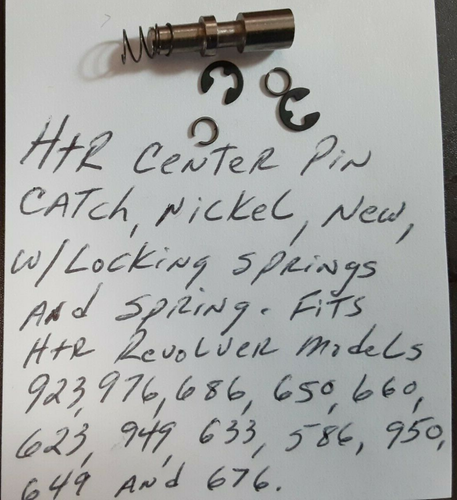 H+R CENTER PIN
CATCH, NICKEL, NEW,
W/LOCKING SPRINGS
AND SPRING. FITS
H+R REVOLVER MODELS
923, 976, 686, 650, 660,
623, 949, 633, 586, 950,
649 AND 676.